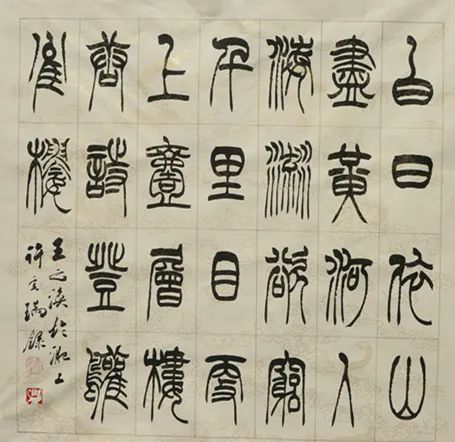 白日依山
盡黃河入
海流欲窮
千里目更
上壹層樓
唐詩登鸛
雀樓
王之渙於上
許瑞錄